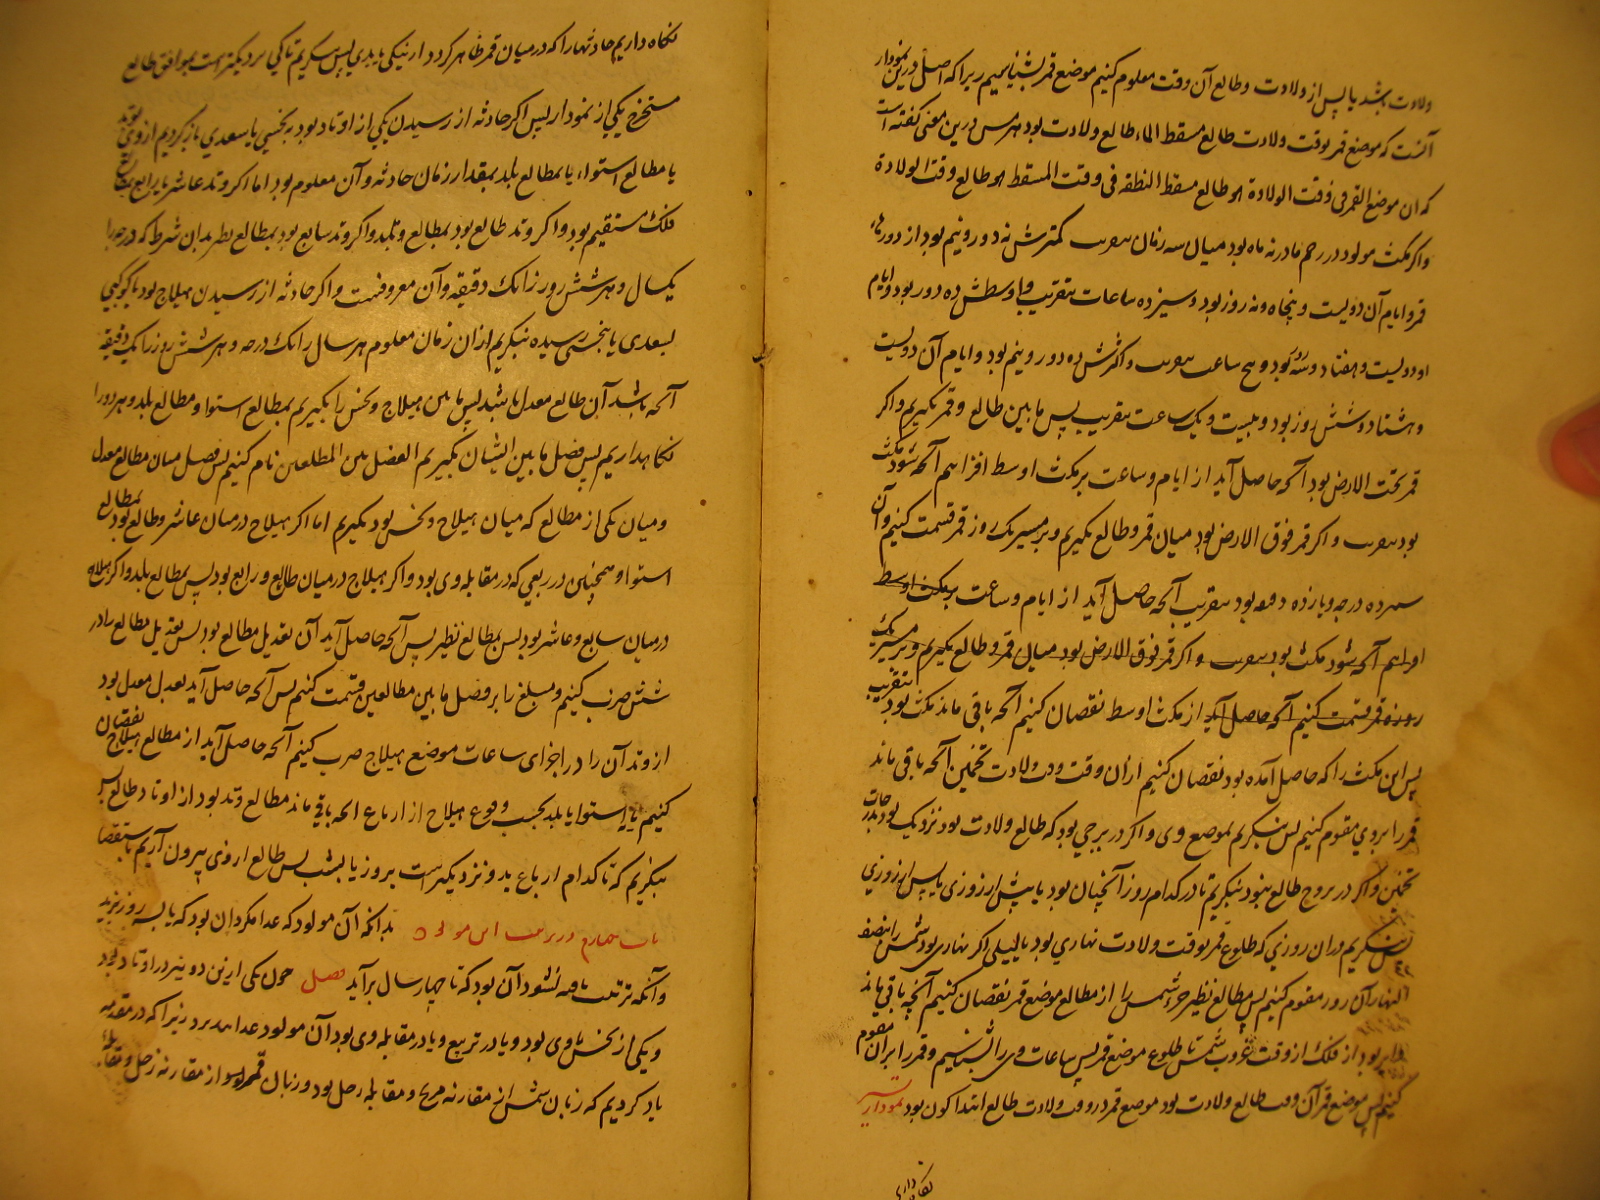 ولادت باشد یا پس از ولادت و طالع آن وقت معلوم کنیم موضع قمر بشناسیم زیرا که اصل درین نمودار
آنست که موضع قمر بوقت ولادت طالع مسقط الماء طالع ولادت بود هرمس درین معنی گفته است
که ان موضع القمر فی وقت الولادة هو طالع مسقط النطفه فی وقت المسقط هو طالع وقت الولادة
و اکر مکث مولود در رحم مادر نه ماه بود میان سه زمان بود کمترش نه دور و نیم بود از دورهای
قمر و ایام آن دویست و پنجاه و نه روز بود و سیزده ساعات بتقریب و اوسطش ده دور بود و ایام
او دویست و هفتاد و سه روز بود و پنج ساعت و اکثرش ده دور و نیم بود و ایام آن دویست
و هشتاد و شش روز بود و بیست و یک ساعت بتقریب پس ما بین طالع و قمر بکیریم و اکر
قمر تحت الارض بود آنچه حاصل آید از ایام و ساعت بر مکث اوسط افزاییم آنچه شود مکث
بود و اکر قمر فوق الارض بود میان قمر و طالع بکیریم و بر مسیر یک روز قمر قسمت کنیم و آن
سیزده درجه و یازده دقیقه بود بتقریب آنچه حاصل آید از ایام و ساعت بر مکث اوسط
افزاییم آنچه شود مکث بود و اکر قمر فوق الارض بود میان قمر و طالع بکیریم و بر مسیر یک
روزه قمر قسمت کنیم آنچه حاصل آید از مکث اوسط نقصان کنیم آنچه باقی ماند مکث بود بتقریب
پس این مکث را که حاصل آمده بود نقصان کنیم از آن وقت ولادت تخمین آنچه باقی ماند
قمر را بروی مقوم کنیم پس بنکریم بموضع وی و اکر در برجی بود که طالع ولادت بود نزدیک بود بدرجات
تخمین و اکر در برج طالع نبود بنکریم تا در کدام روز آنچنان بود یا پیش از روزی یا پس از روزی
پس بنکریم در آن روزی که طلوع قمر بوقت ولادت نهاری بود یا لیلی اکر نهاری بود شمس را بنصف
النهار آن روز مقوم کنیم پس مطالع نظیر جزء شمس را از مطالع موضع قمر نقصان کنیم آنچه باقی ماند
دایر بود از فلک از وقت غروب شمس تا طلوع موضع قمر پس ساعات وی را بشناسیم و قمر را بر آن مقوم
کنیم پس موضع قمر آن وقت طالع ولادت بود موضع قمر در وقت ولادت طالع ابتدا کون بود نمودار
نکاه داری
نکاه داریم حادثها را که در میان قمر ظاهر کردد از نیکی یا بدی پس بنکریم تا کی نزدیکتر است بموافق طالع
مستخرج یکی از نمودار پس اکر حادثه از رسیدن یکی از اوتاد بود به نحسی یا سعدی باز کردیم از وی
یا مطالع استواء یا بمطالع بلد بمقدار زمان حادثه و آن معلوم بود اما اکر وتد عاشر یا رابع بمطالع
فلک مستقیم بود و اکر وتد طالع بود بمطالع وتد بلد و اکر وتد سابع بود بمطالع نظیر بدان شرط که درجه را
یکسال و هر شش روز را یک دقیقه و آن معروفست و اکر حادثه از رسیدن هیلاج بود با کوکبی
بسعدی یا نحسی رسیده بنکریم از آن زمان معلوم هر سال را یک درجه و هر شش روز را یک دقیقه
آنچه باشد آن طالع معدل باشد پس ما بین هیلاج و نحس را بکیریم بمطالع استوا و مطالع بلد و هر دو را
نکاه داریم پس فضل ما بین ایشان بکیریم الفضل بین المطلعین نام کنیم پس فضل میان مطالع معدل
و میان یکی از مطالع که میان هیلاج و نحس بود بکیریم اما اکر هیلاج در میان عاشر و طالع بود بمطالع
استوا و همچنین در ربعی که در مقابله وی بود و اکر هیلاج در میان طالع و رابع بود پس بمطالع بلد و اکر هیلاج
در میان سابع و عاشر بود پس بمطالع نظیر پس آنچه حاصل آید آن تعدیل مطالع بود پس تعدیل مطالع را در
شش ضرب کنیم و مبلغ را بر فضل ما بین مطالعین قسمت کنیم پس آنچه حاصل آید بعد معدل بود
از وتد آن را در اجزای ساعات موضع هیلاج ضرب کنیم آنچه حاصل آید از مطالع هیلاج نقصان
کنیم یا استوا یا بلد بحسب وقوع هیلاج از ارباع آنچه باقی ماند مطالع وتد بود از اوتاد طالع پس
بنکریم که تا کدام ارباع بدو نزدیکتر است بروز یا بشب پس طالع از وی بیرون آریم باستقصا
باب چهارم در تربیت این مولود بدانکه آن مولود که غذا مکردان بود که یا بسه روز نزید
و آنکه تربیت یافته نشود آن بود که تا چهار سال برآید فصل چون یکی ازین دو نیر در اوتاد بود
و یکی از نحس با وی بود و یا در تربیع و یا در مقابله وی بود آن مولود غذا نپذیرد زیرا که در مقدمه
یاد کردیم که زیان شمس از مقارنه مریخ و مقابله زحل بود و زیان قمر از مقارنه زحل و مقابله